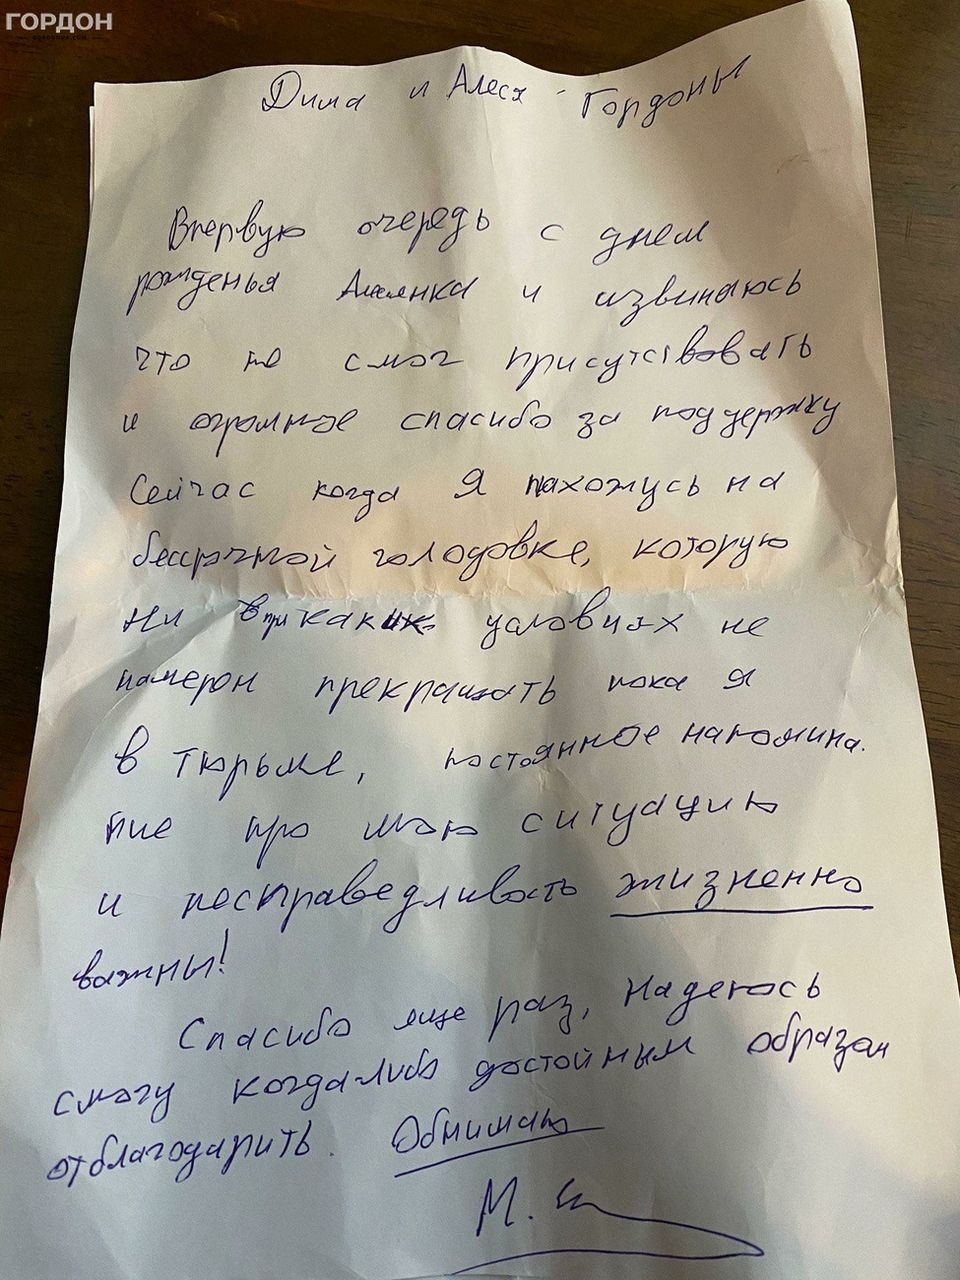 ГОРДОН
Дима и Алеся Гордоны
Впервую очередь с днем
рожденья Алеянка и извиняюсь
что не смог присутствовать
и огромное спасибо за поддержку
Сейчас когда Я нахожусь на
бессрочной голодовке, которую
ни при каких условиях не
намерон прекращать пока я
в тюрьме, постоянное напомина-
ние про мою ситуацию
и несправедливость жизненно
важны!
Спасибо яще раз, надеюсь
смогу когдалибо достойным образом
отблагодарить. Обнимаю
М.